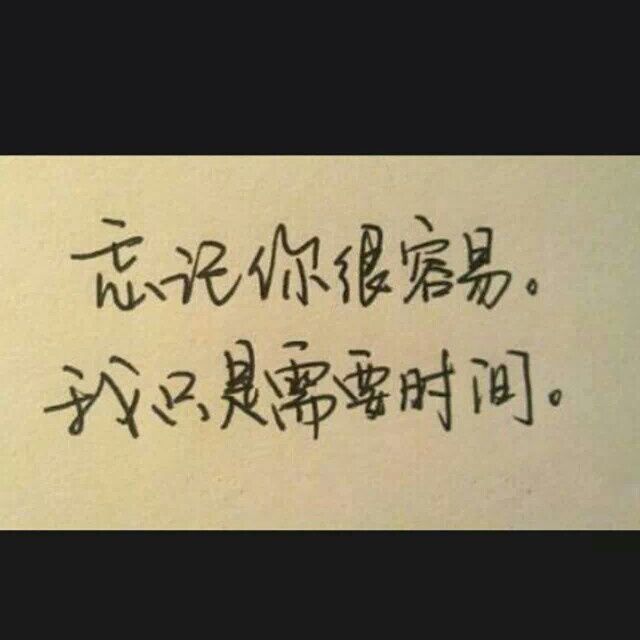 忘记你很容易。
我只是需要时间。